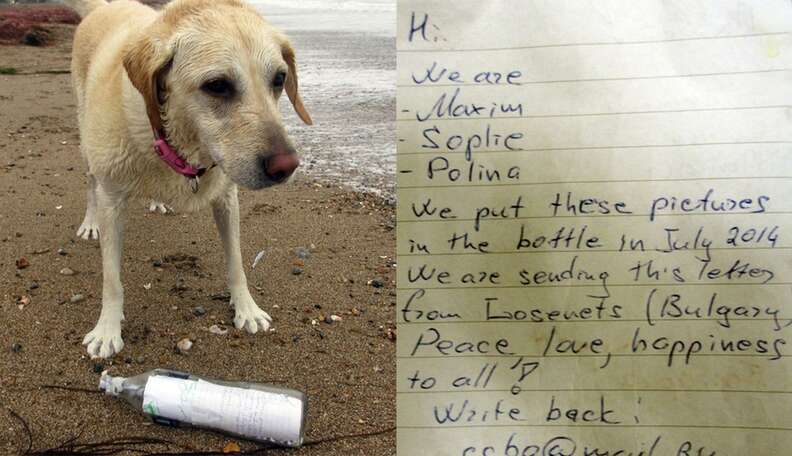 Hi.
We are
- Maxim
- Sophie
- Polina
We put these pictures
in the bottle in July 2014
We are sending this letter
from Losenets (Bulgary
Peace love, happiness
to all!
Write back: